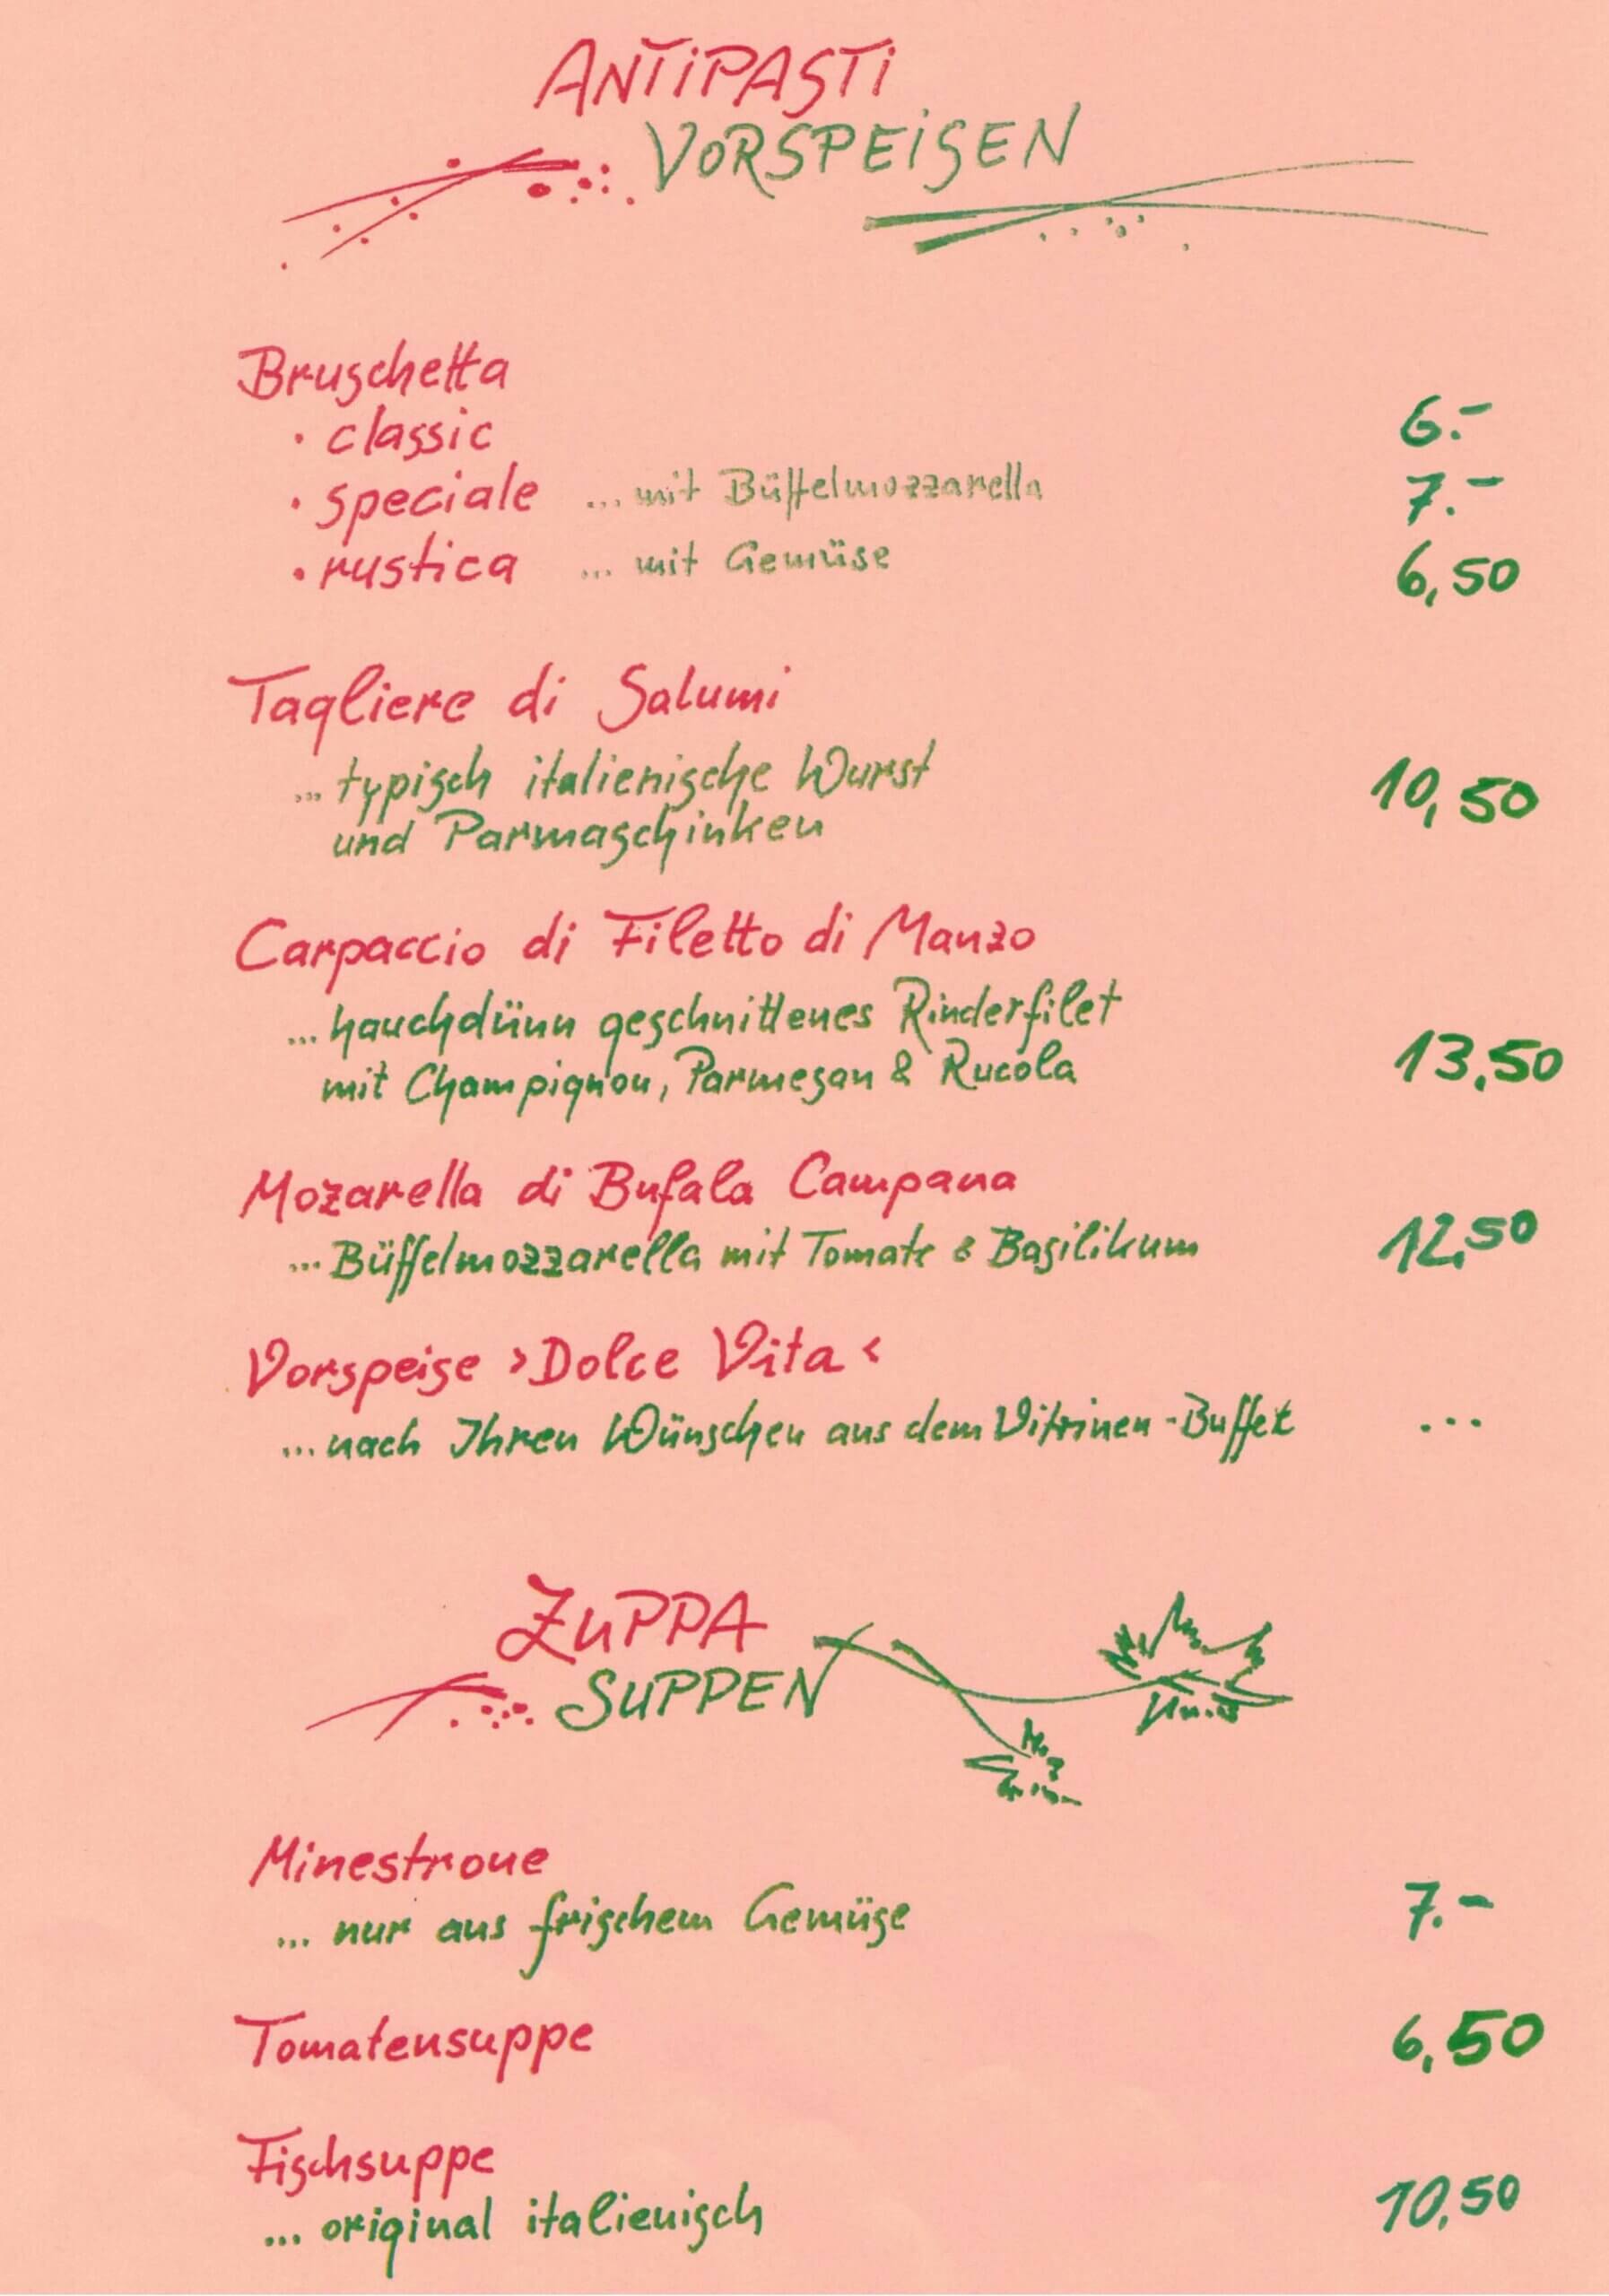 ANTiPASTi
VORSPEiSEN
Bruschetta
• classic 6.-
• speciale ... mit Büffelmozzarella 7.-
• rustica ... mit Gemüse 6,50
Tagliere di Salumi
... typisch italienische Wurst
und Parmaschinken 10,50
Carpaccio di Filetto di Manzo
... hauchdünn geschnittenes Rinderfilet
mit Champignon, Parmesan & Rucola 13,50
Mozarella di Bufala Campana
... Büffelmozzarella mit Tomate & Basilikum 12,50
Vorspeise >Dolce Vita<
... nach Ihren Wünschen aus dem Vitrinen-Buffet ...
ZUPPA
SUPPEN
Minestrone
... nur aus frischem Gemüse 7.-
Tomatensuppe 6,50
Fischsuppe
... original italienisch 10,50